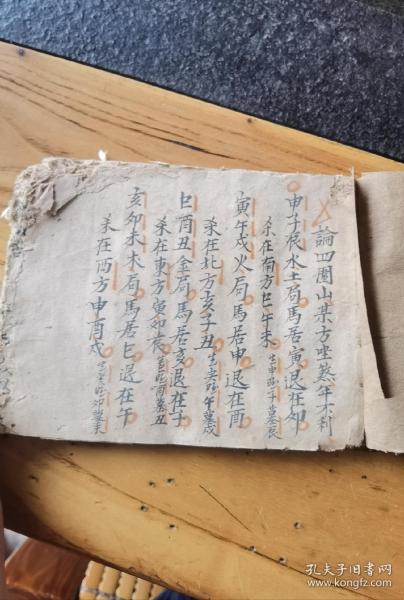 論四圍山某方唑煞年不利
申子辰水土局馬居寅退在卯
杀在南方巳午未生申旺子墓辰
寅午戌火局馬居申退在酉
杀在北方亥子丑生寅旺午墓戌
巳酉丑金局馬居亥退在子
杀在東方寅卯辰生巳旺酉墓丑
亥卯未木局馬居巳退在午
杀在西方申酉戌生亥旺卯墓未
孔夫子旧书网
www.kongfz.com